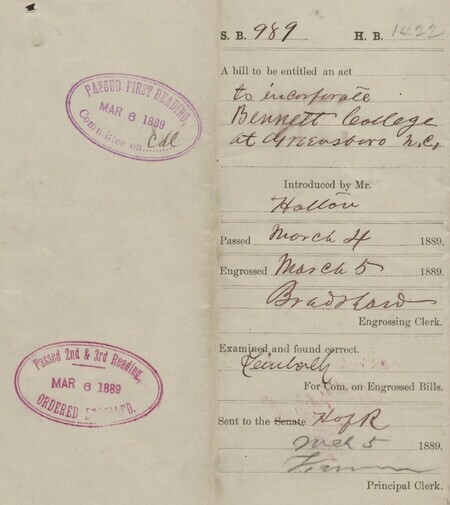 PASSED FIRST READING,
MAR 6 1889
Committee on Cal
Passed 2nd & 3rd Reading,
MAR 6 1889
ORDERED
S. B. 989 H. B. 1422
A bill to be entitled an act
to incorporate
Bennett College
at Greensboro N.C,
Introduced by Mr.
Holton
Passed March 4 1889.
Engrossed March 5 1889.
Bradshaw
Engrossing Clerk.
Examined and found correct.
For Com. on Engrossed Bills.
Sent to the Senate H of R
Mch 5 1889.
Principal Clerk.